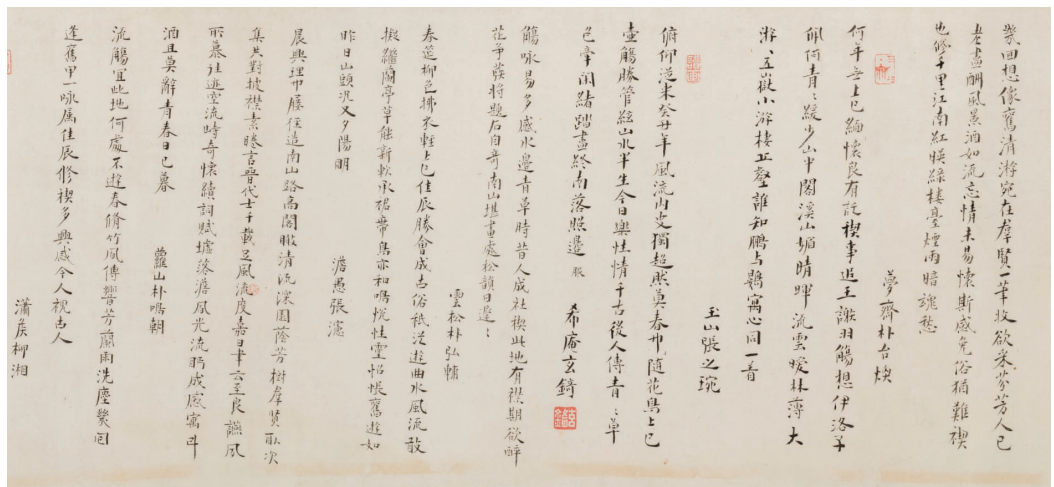 幾回想像舊清游宛在羣賢一筆收欲采芬芳人已
老盡酬風景酒如流忘情未易懷斯感免俗猶難禊
也修千里江南紅暎綠樓臺煙雨暗魂愁
夢齋朴台煥
何年無上巳緬懷良有託禊事追王謝羽觴想伊洛子
佩何青青緩步山中閣溪山媚晴暉流雲曖林薄大
游五嶽小游樓丘壑誰知鵬與鷃寓心同一着
玉山張之琬
俯仰造來癸丑年風流內史獨超然莫春卅隨花鳥上巳
壺觴勝管絃山水半生今日樂性情千古後人傳青青草
色牽閒緒踏盡終南落照邊
希庵玄錡
觴咏易多感水邊青草時昔人成社禊此地有襟期欲醉
花爭發將題石自奇南山堪畫處松韻日遲遲
雲松朴弘𨎪
春筵柳色拂衣輕上巳佳辰勝會成古俗秖從遊曲水風流敢
擬繼蘭亭草能新軟承裙帶鳥亦和鳴悅性靈怊悵舊遊如
昨日山頭況又夕陽明
澹愚張濾
晨興理巾屨徑造南山路高閣瞰清流深園蔭芳樹羣賢取次
集共對披襟素睠言晉代士千載足風流度嘉日聿云至良讌夙
所慕往迹空流峙奇懷續詞賦墟落澹風光流眄成感寓斗
酒且莫辭青春日已暮
蘿山朴鳴朝
流觴宜此地何處不遊春脩竹風傳響芳蘭雨洗塵幾回
逢舊甲一咏属佳辰修禊多興感今人視古人
瀟侯柳湘